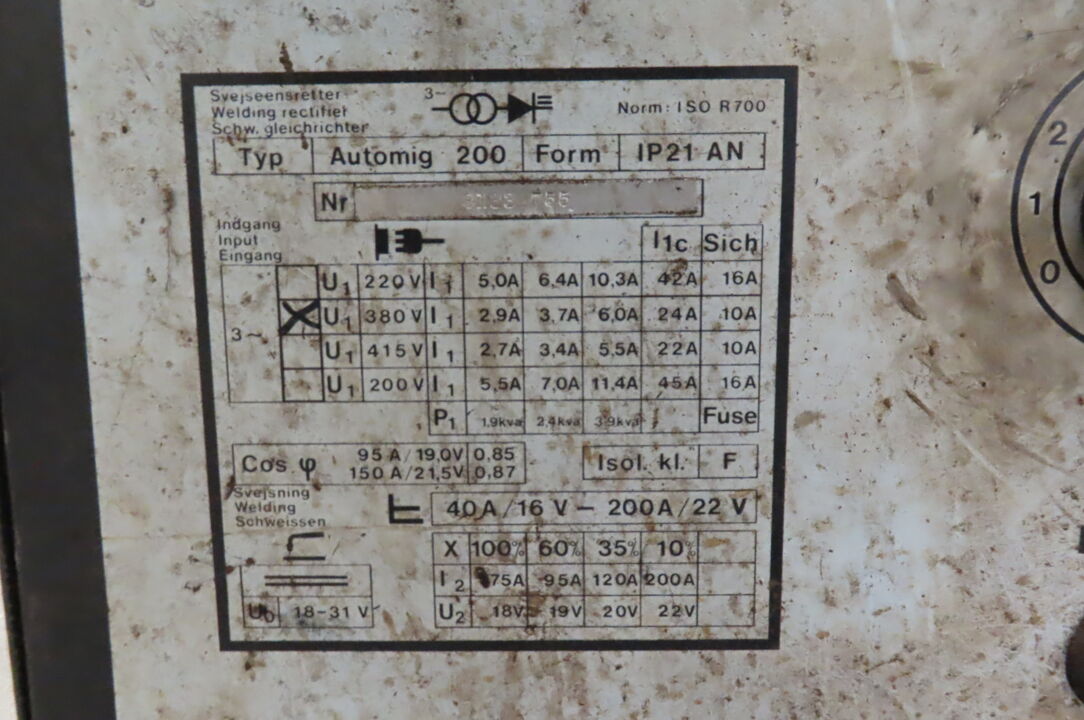 Svejseensretter
Welding rectifier
Schw. gleichrichter
3~
Norm: ISO R700
Typ Automig 200 Form IP21 AN
Nr
Indgang
Input
Eingang
I1c Sich
U1 220 V I1 5,0A 6,4A 10,3A 42A 16A
X U1 380 V I1 2,9A 3,7A 6,0A 24A 10A
3~
U1 415 V I1 2,7A 3,4A 5,5A 22A 10A
U1 200 V I1 5,5A 7,0A 11,4A 45A 16A
P1 1,9kva 2,4kva 3,9kva Fuse
Cos φ 95 A/19,0V 0,85
150 A/21,5V 0,87
Isol. kl. F
Svejsning
Welding
Schweissen
40A/16 V – 200A/22 V
X 100% 60% 35% 10%
I2 75A 95A 120A 200A
U0 18-31 V
U2 18V 19V 20V 22V
2
1
0